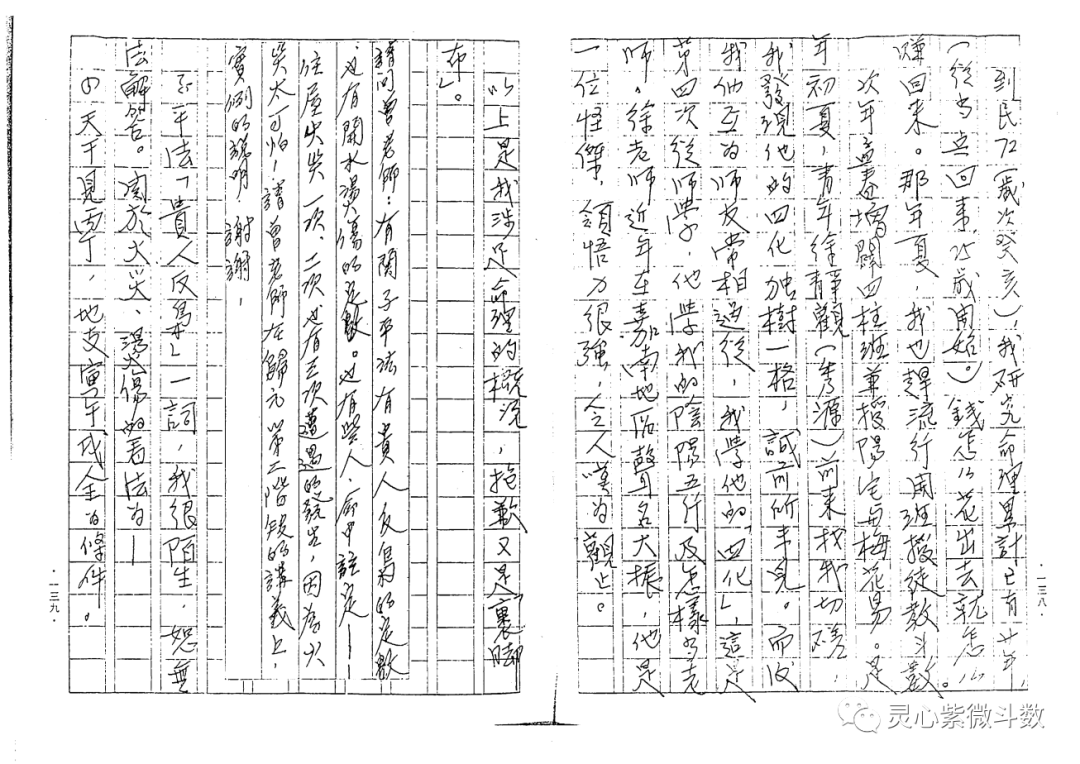 到民72（歲次癸亥），我研究命理累計已有廿年
（從當兵回來25歲開始。）錢怎么花出去就怎么
賺回來。那年夏，我也趕流行開班授徒教斗數。
次年孟春增開四柱班兼授陽宅與梅花易。是
年初夏，青年徐靜觀（秀源）前來找我切磋，
我發現他的四化独樹一格，誠前所未見。而後
我倆互為師友常相過從，我學他的「四化」，這是
第四次從師學，他學我的陰陽五行及怎樣当老
師。徐老師近年在嘉南地區聲名大振，他是
一位怪傑，領悟力很強，令人嘆为觀止。
·一三八·
以上是我涉足命理的概況，抱歉又是「裹脚
布」。
請問曾老師：有関子平法有貴人反為的定數
也有開水燙傷的定數。也有些人，命中註定——
住屋失災一次、二次，也有三次遭遇的發生，因為火
災太可怕，請曾老師在歸元第二階段的講義上，
實例的說明，謝謝，
子平法「貴人反為」一詞，我很陌生，恕無
法解答。関於火災、燙傷的看法为——
⑴天干見丙丁，地支寅午戌全为條件。
·一三九·
灵心紫微斗数